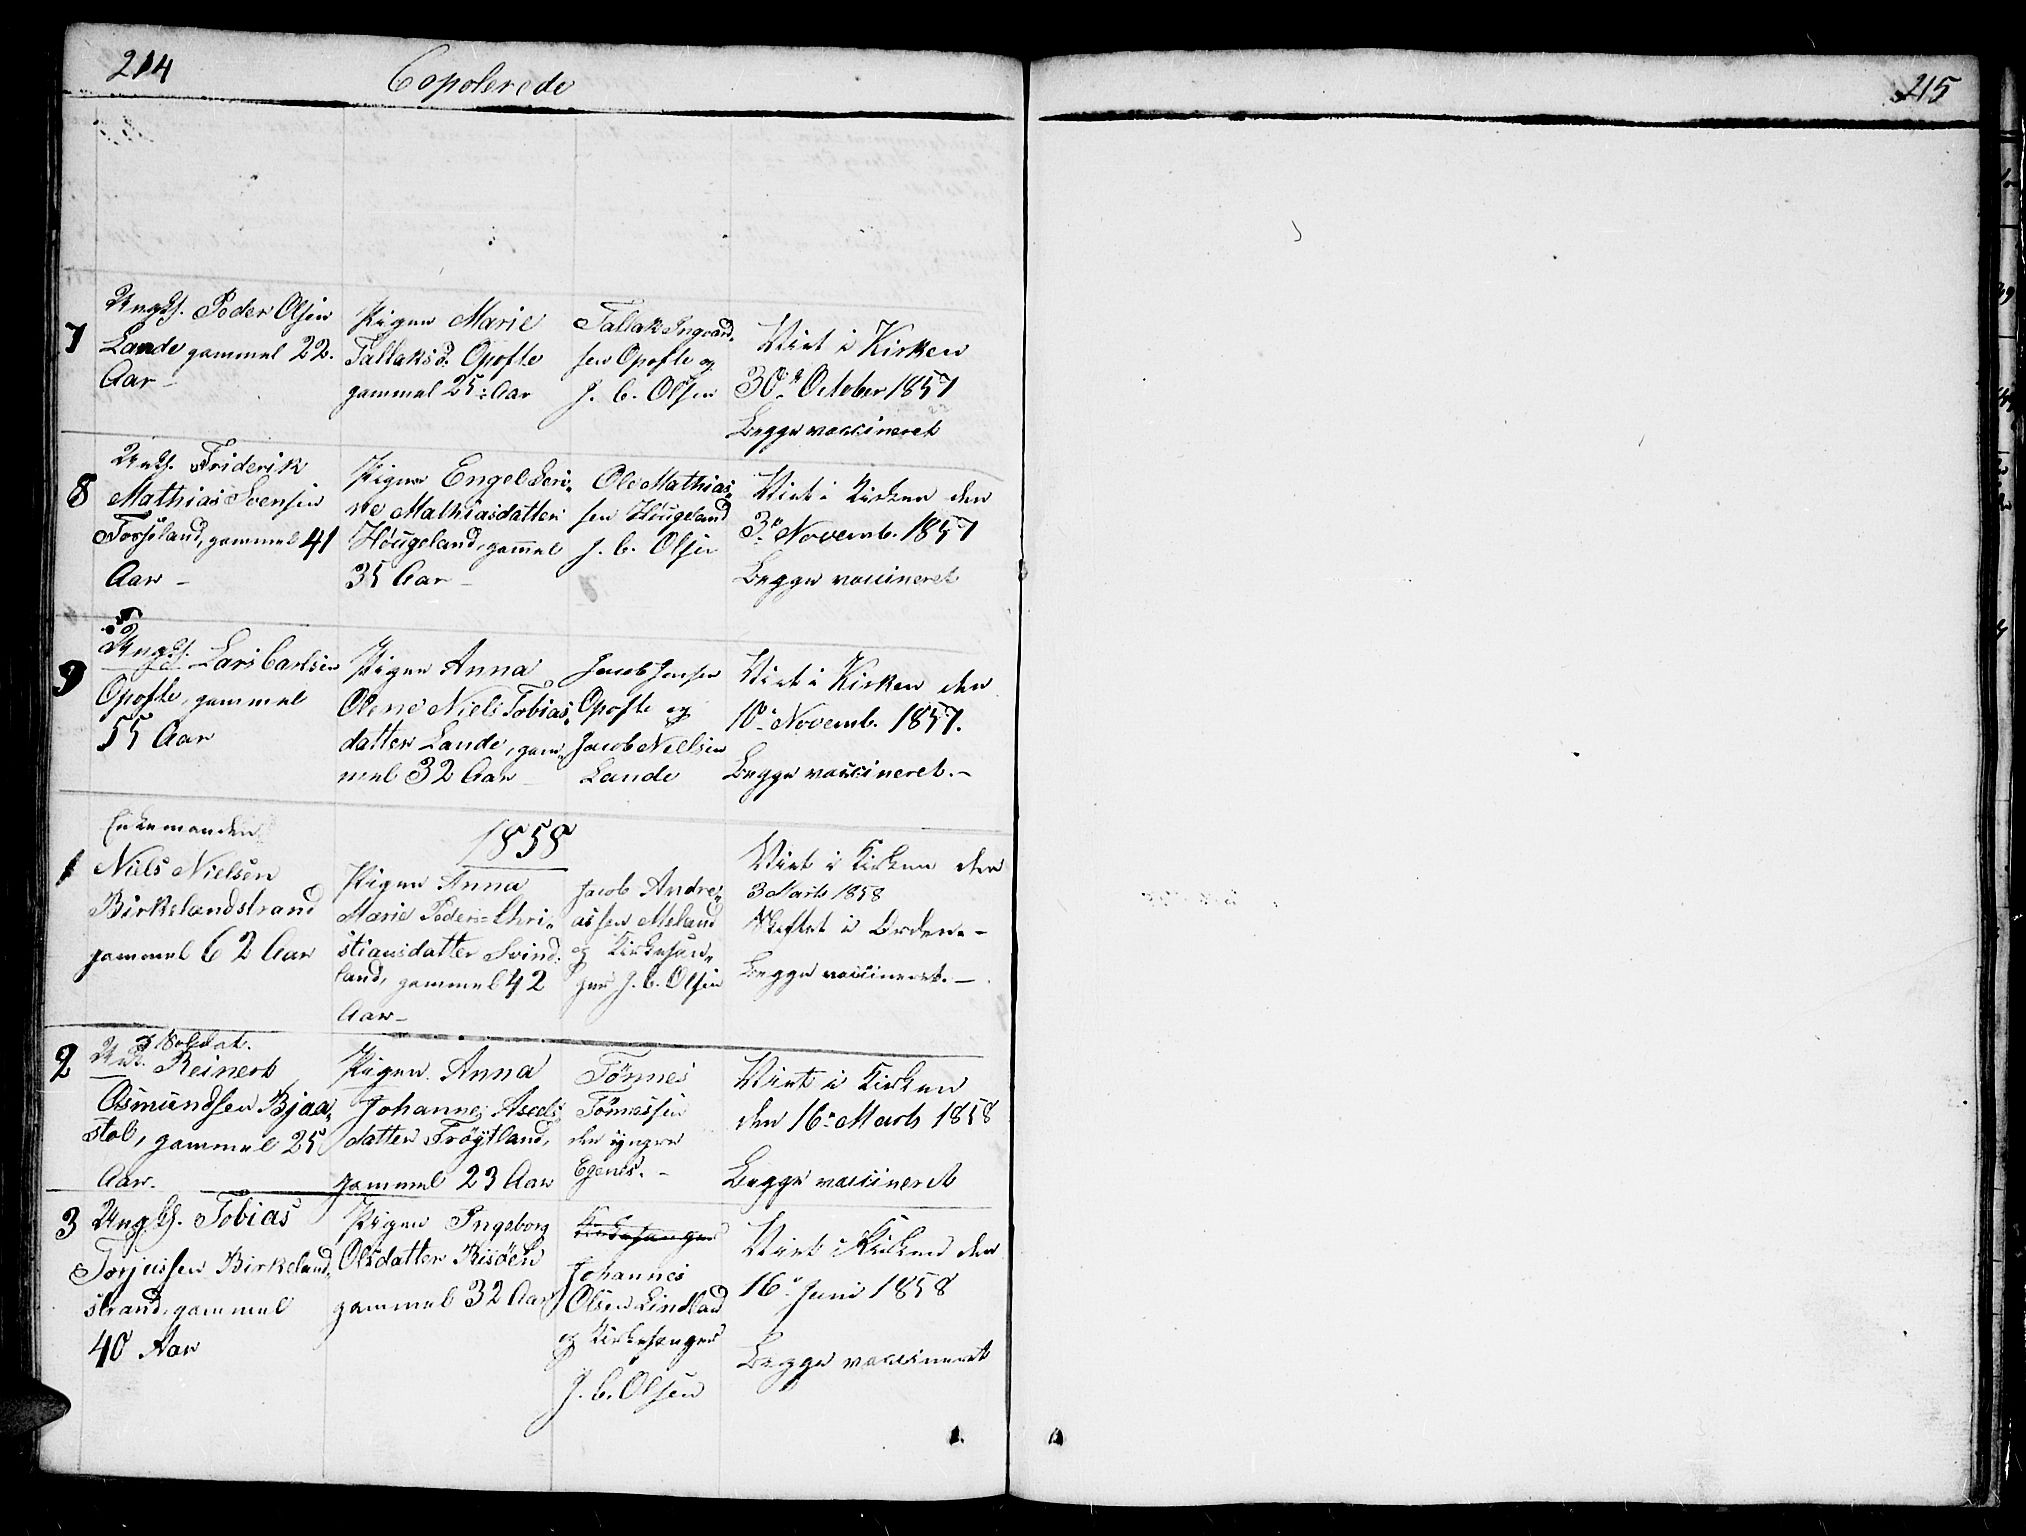 214
Copolerede
215
7
Ungk. Peder Olsen
Lande gammel 22.
Aar –
Pigen Marie
Tallaksd. Opofte
gammel 25: Aar
Tallak Ingvald-
sen Opofte og
J. C. Olsen
Viet i Kirken
30. October 1857
Begge vaccineret
8
Ungk. Friderik
Mathias Svensen
Torseland, gammel 41
Aar –
Pigen Engel Seri-
ne Mathiasdatter
Hougeland, gammel
35 Aar –
Ole Mathias-
sen Hougeland
J. C. Olsen
Viet i Kirken den
3. Novemb. 1857
Begge vaccineret
9
Ungk. Lars Carlsen
Opofte, gammel
55 Aar
Pigen Anna
Olene Niels Tobias-
datter Lande, gam-
mel 32 Aar –
Jacob Jensen
Opofte og
Jacob Nielsen
Lande
Viet i Kirken den
10. Novemb. 1857.
Begge vaccineret. –
1858
1
Enkemanden
Niels Nielsen
Birkelandstrand
gammel 62 Aar
Pigen Anna
Marie Peder Chri-
stiansdatter Svind-
land, gammel 42
Aar –
Jacob Andre-
assen Meland
og Kirkesan-
ger J. C. Olsen
Viet i Kirken den
3 Marts 1858
Skiftet i Orden. –
Begge vaccineret. –
2
Ungk. Soldat.
Reinert
Osmundsen Bjaa-
stol, gammel 25
Aar.
Pigen Anna
Johanne Aseds-
datter Frøytland,
gammel 23 Aar
Tönnes
Tönnessen
den yngre
Egenes. –
Viet i Kirken
den 16. Marts 1858
Begge vaccineret
3
Ungk. Tobias
Torjussen Birkeland-
strand, gammel
40 Aar
Pigen Ingeborg
Olsdatter Risöen
gammel 32 Aar
Kirkesanger
Johannes
Olsen Lindland
og Kirkesanger
J. C. Olsen
Viet i Kirken den
16. Juni 1858
Begge vaccineret